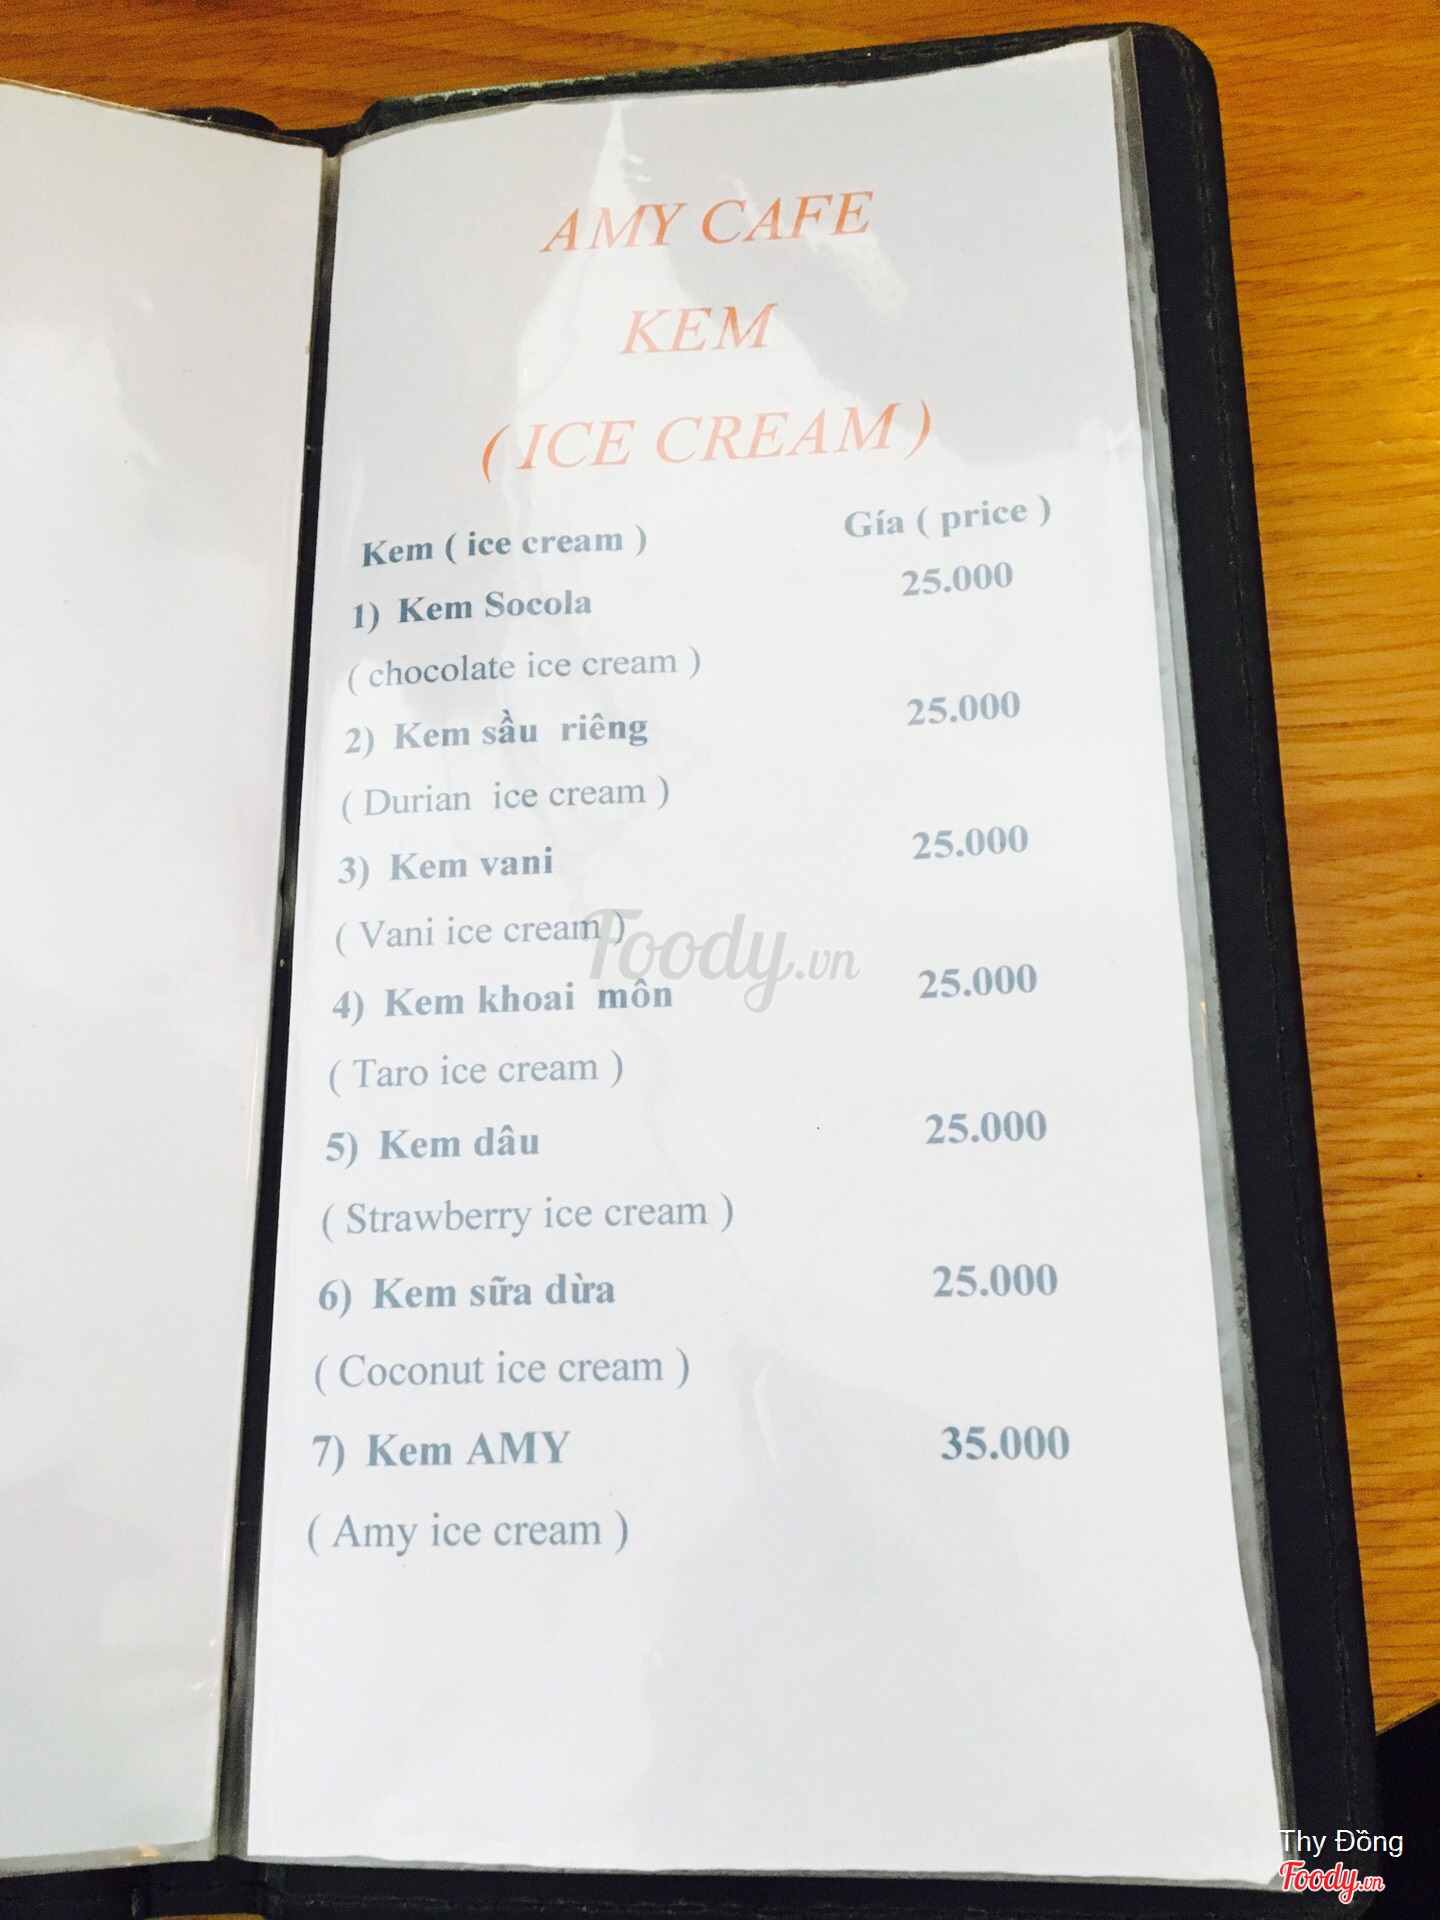 AMY CAFE
KEM
( ICE CREAM )
Kem ( ice cream ) Gía ( price )
1) Kem Socola 25.000
( chocolate ice cream )
2) Kem sầu riêng 25.000
( Durian ice cream )
3) Kem vani 25.000
( Vani ice cream )
Foody.vn
4) Kem khoai môn 25.000
( Taro ice cream )
5) Kem dâu 25.000
( Strawberry ice cream )
6) Kem sữa dừa 25.000
( Coconut ice cream )
7) Kem AMY 35.000
( Amy ice cream )
Thy Đồng
Foody.vn